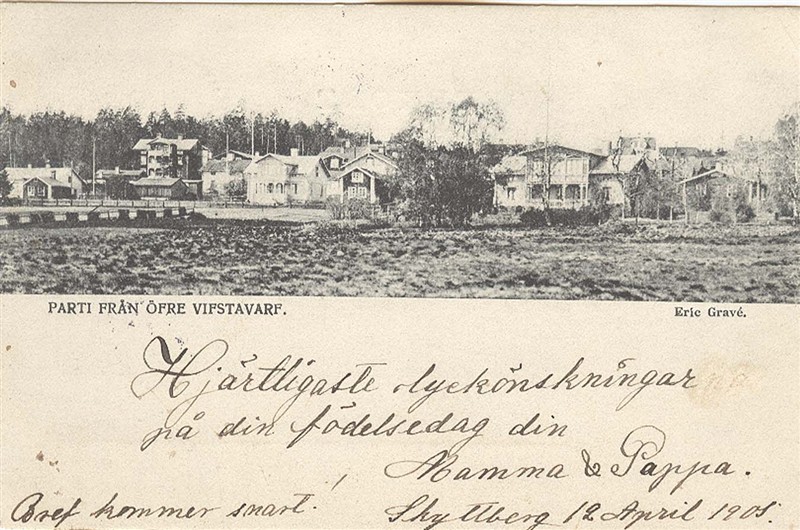 PARTI FRÅN ÖFRE VIFSTAVARF.
Eric Gravé.
Hjärtligaste lyckönskningar
på din födelsedag din
Mamma & Pappa.
Bref kommer snart!
Skyttberg 12 April 1905.